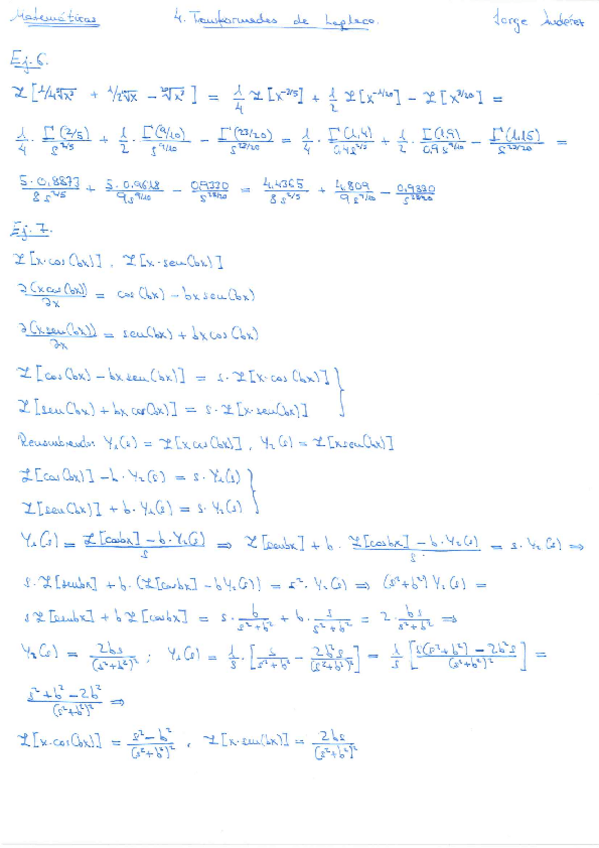 Matemáticas 4. Transformadas de Laplace. Jorge
Ej. 6.
ℒ[1/4 + 1/2 − ] = 1/4 ℒ[x^(-3/5)] + 1/2 ℒ[x^(-1/10)] − ℒ[x^(3/20)] =
1/4 · Γ(2/5)/s^(2/5) + 1/2 · Γ(9/10)/s^(9/10) − Γ(23/20)/s^(23/20) = 1/4 · Γ(1,4)/(0,4 s^(2/5)) + 1/2 · Γ(1,9)/(0,9 s^(9/10)) − Γ(1,15)/s^(23/20) =
5·0,8873/(8 s^(2/5)) + 5·0,9618/(9 s^(9/10)) − 0,9330/s^(23/20) = 4,4365/(8 s^(2/5)) + 4,809/(9 s^(9/10)) − 0,9330/s^(23/20)
Ej. 7.
ℒ[x·cos(bx)], ℒ[x·sen(bx)]
∂(x cos(bx))/∂x = cos(bx) − bx sen(bx)
∂(x sen(bx))/∂x = sen(bx) + bx cos(bx)
ℒ[cos(bx) − bx sen(bx)] = s·ℒ[x·cos(bx)] }
ℒ[sen(bx) + bx cos(bx)] = s·ℒ[x·sen(bx)] }
Renombrando: Y₁(s) = ℒ[x cos(bx)], Y₂(s) = ℒ[x sen(bx)]
ℒ[cos(bx)] − b·Y₂(s) = s·Y₁(s) }
ℒ[sen(bx)] + b·Y₁(s) = s·Y₂(s) }
Y₁(s) = (ℒ[cosbx] − b·Y₂(s))/s ⇒ ℒ[senbx] + b · (ℒ[cosbx] − b·Y₂(s))/s = s·Y₂(s) ⇒
s·ℒ[senbx] + b·(ℒ[cosbx] − bY₂(s)) = s²·Y₂(s) ⇒ (s²+b²)Y₂(s) =
sℒ[senbx] + bℒ[cosbx] = s · b/(s²+b²) + b · s/(s²+b²) = 2 · bs/(s²+b²) ⇒
Y₂(s) = 2bs/(s²+b²)² ; Y₁(s) = 1/s · [s/(s²+b²) − 2b²s/(s²+b²)²] = 1/s [(s(s²+b²) − 2b²s)/(s²+b²)²] =
(s²+b²−2b²)/(s²+b²)² ⇒
ℒ[x·cos(bx)] = (s²−b²)/(s²+b²)², ℒ[x·sen(bx)] = 2bs/(s²+b²)²